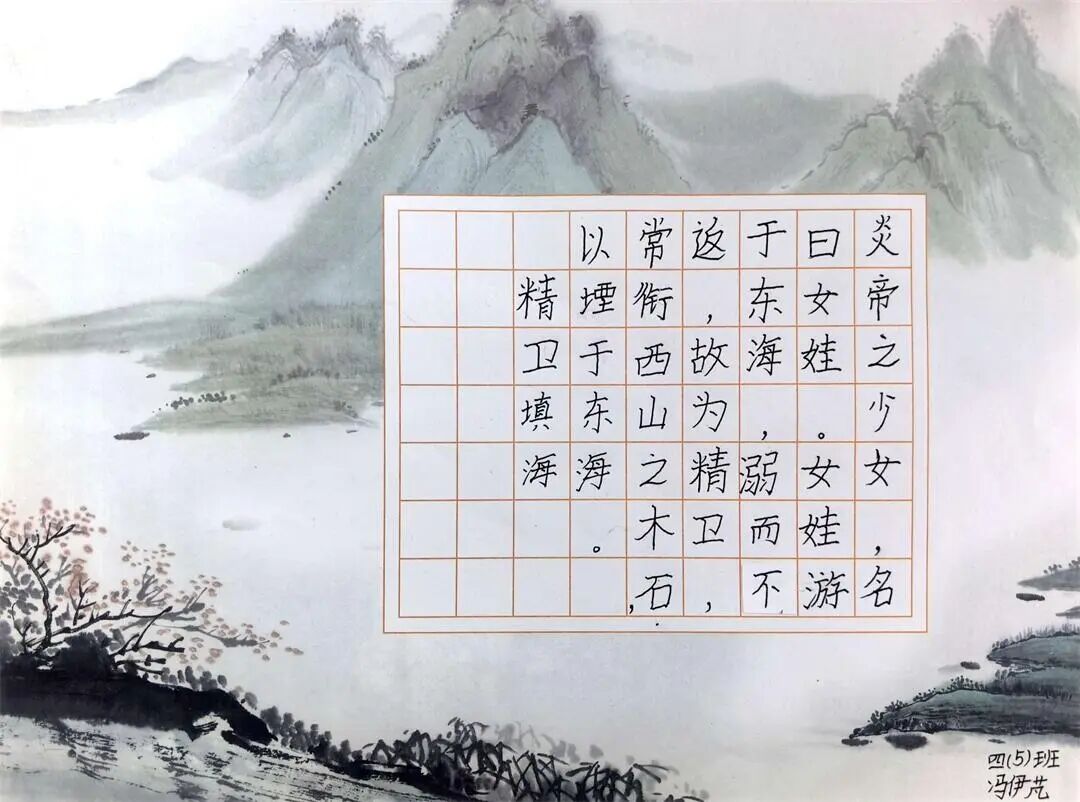 炎帝之少女，名
曰女娃。女娃游
于东海，溺而不
返，故为精卫，
常衔西山之木石，
以堙于东海。
精卫填海
四(5)班
冯伊芃